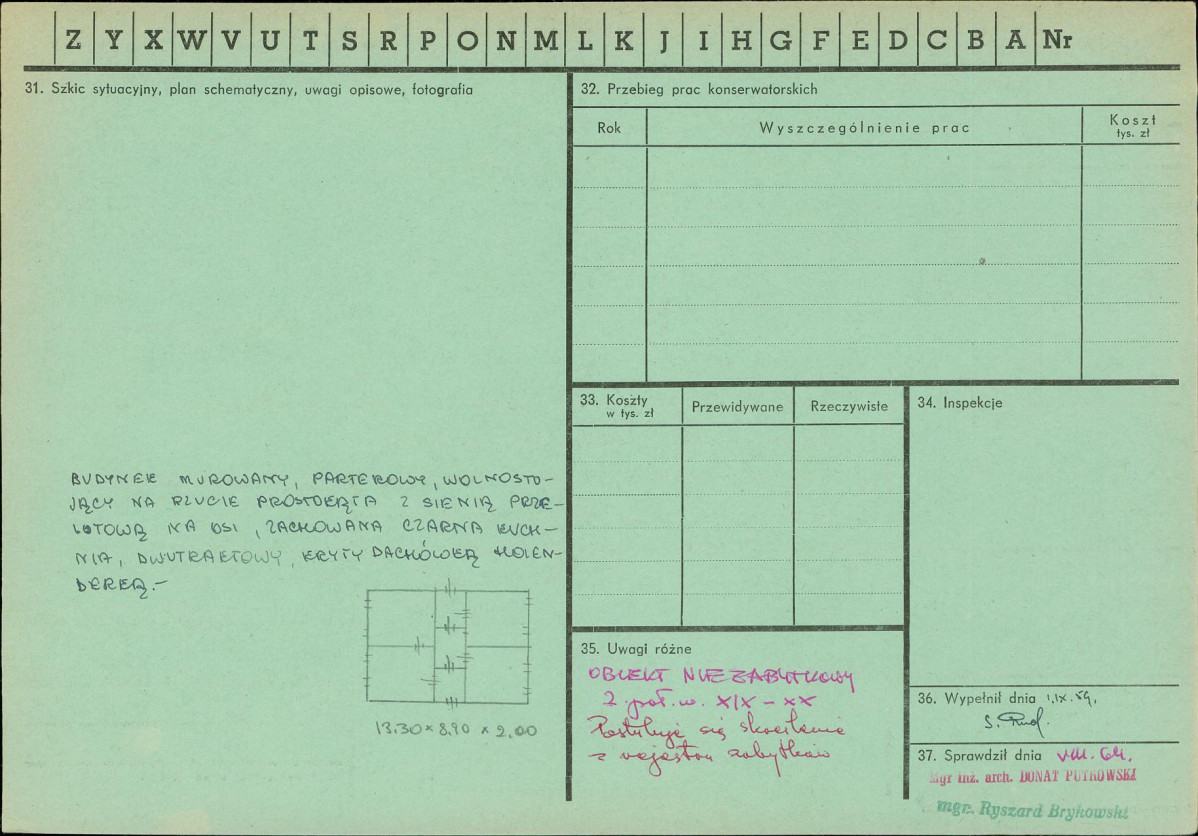 Z Y X W V U T S R P O N M L K J I H G F E D C B A Nr
31. Szkic sytuacyjny, plan schematyczny, uwagi opisowe, fotografia
BUDYNEK MUROWANY, PARTEROWY, WOLNOSTO-
JĄCY NA RZUCIE PROSTOKĄTA Z SIENIĄ PRZE-
LOTOWĄ NA OSI, ZACHOWANA CZARNA KUCH-
NIA, DWUTRAKTOWY, KRYTY DACHÓWKĄ HOLEN-
DERKĄ.-
13.30 × 8.90 × 2.00
32. Przebieg prac konserwatorskich
Rok
Wyszczególnienie prac
Koszt
tys. zł
33. Koszty
w tys. zł
Przewidywane
Rzeczywiste
34. Inspekcje
35. Uwagi różne
OBIEKT NIEZABYTKOWY
2 poł. w. XIX - XX
Postuluje się skreślenie
z rejestru zabytków
36. Wypełnił dnia 1.IX.59.
37. Sprawdził dnia VIII. 64.
Mgr inż. arch. DONAT PUTKOWSKI
mgr. Ryszard Brykowski